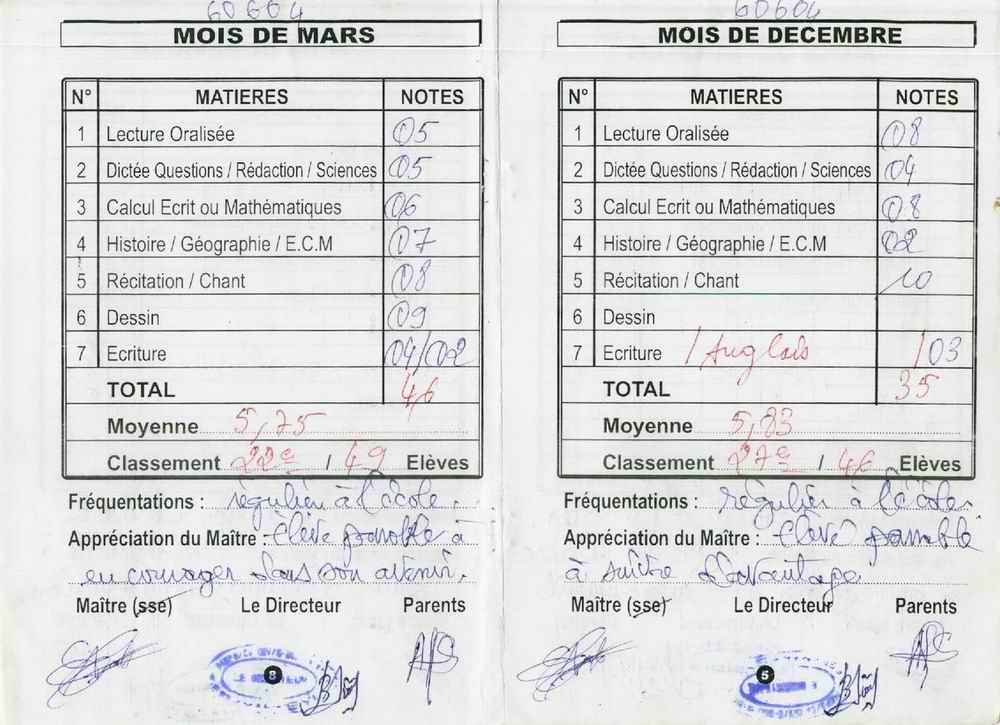 60604
MOIS DE MARS
N° MATIERES NOTES
1 Lecture Oralisée 05
2 Dictée Questions / Rédaction / Sciences 05
3 Calcul Ecrit ou Mathématiques 06
4 Histoire / Géographie / E.C.M 07
5 Récitation / Chant 08
6 Dessin 09
7 Ecriture 04/02
TOTAL 46
Moyenne 5,75
Classement 22e / 49 Elèves
Fréquentations : régulier à l'école.
Appréciation du Maître : Elève passable à
encourager dans son avenir.
Maître (sse) Le Directeur Parents
8
60604
MOIS DE DECEMBRE
N° MATIERES NOTES
1 Lecture Oralisée 08
2 Dictée Questions / Rédaction / Sciences 04
3 Calcul Ecrit ou Mathématiques 08
4 Histoire / Géographie / E.C.M 02
5 Récitation / Chant 10
6 Dessin
7 Ecriture / Anglais /03
TOTAL 35
Moyenne 5,83
Classement 27e / 46 Elèves
Fréquentations : régulier à l'école.
Appréciation du Maître : Elève passable
à suivre davantage
Maître (sse) Le Directeur Parents
5